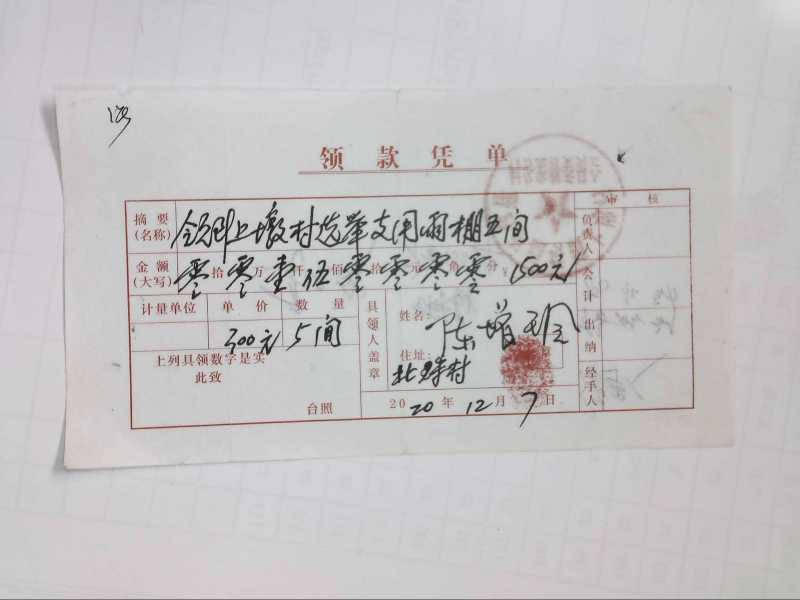 领款凭单
审核
摘要(名称) 领到上墩村选举支用雨棚五间
金额(大写) 零拾零万壹仟伍佰零拾零元零角零分 1500元
计量单位 单价 数量
300元 5间
上列具领数字是实
此致
台照
具领人盖章
姓名: 陈增
住址: 北
村
2020年12月7日
负责人
会计
出纳
经手人